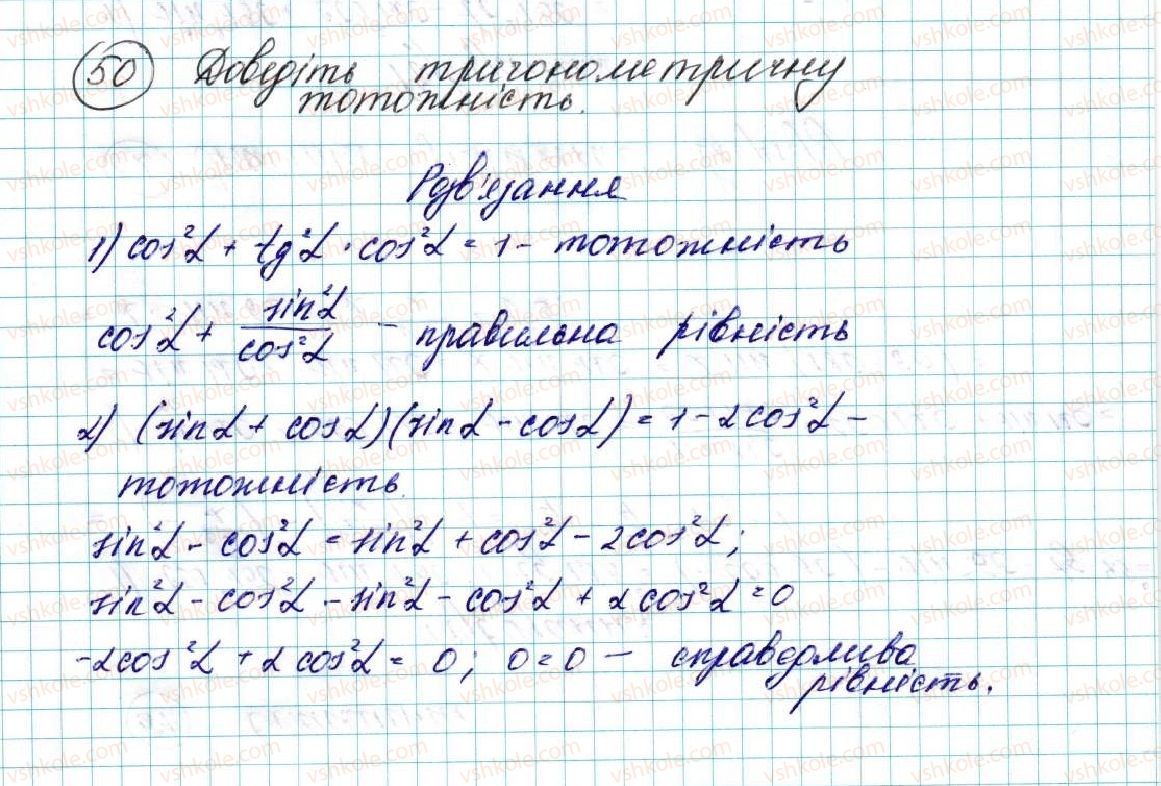 50 Доведіть тригонометричну
тотожність.
Розв'язання
1) cos²α + tg²α · cos²α = 1 - тотожність
cos²α + sin²α/cos²α - правильна рівність
2) (sinα + cosα)(sinα - cosα) = 1 - 2cos²α -
тотожність.
sin²α - cos²α = sin²α + cos²α - 2cos²α;
sin²α - cos²α - sin²α - cos²α + 2cos²α = 0
-2cos²α + 2cos²α = 0; 0 = 0 - справедлива
рівність.
vshkole.com